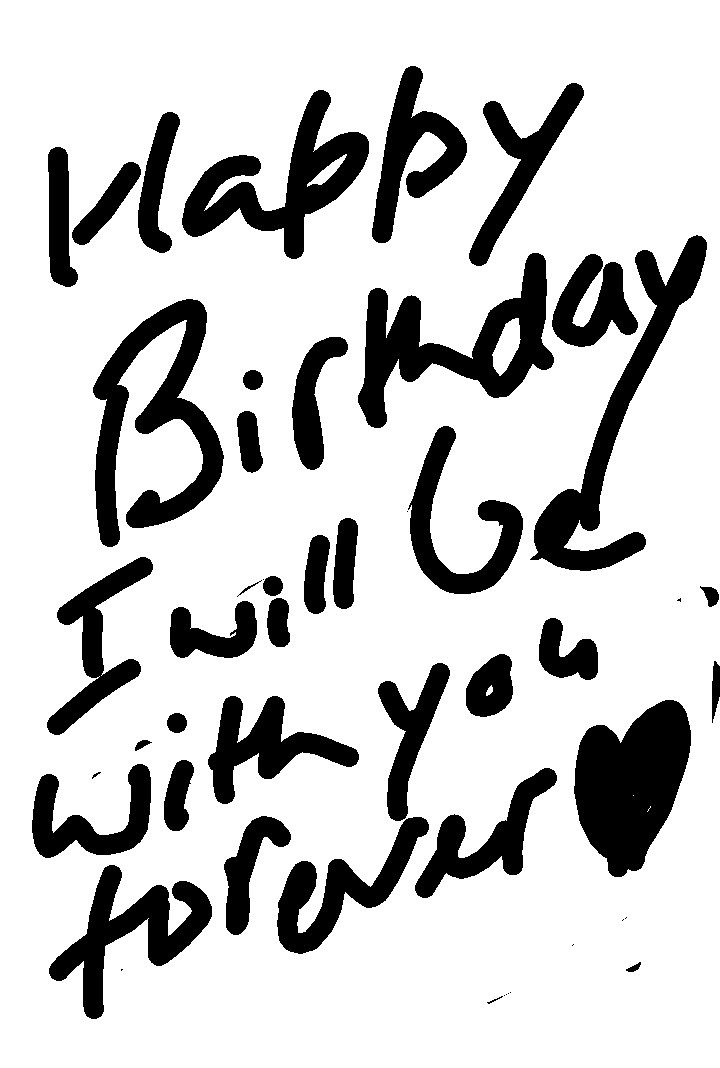 Happy
Birthday
I will be
with you
forever ♥